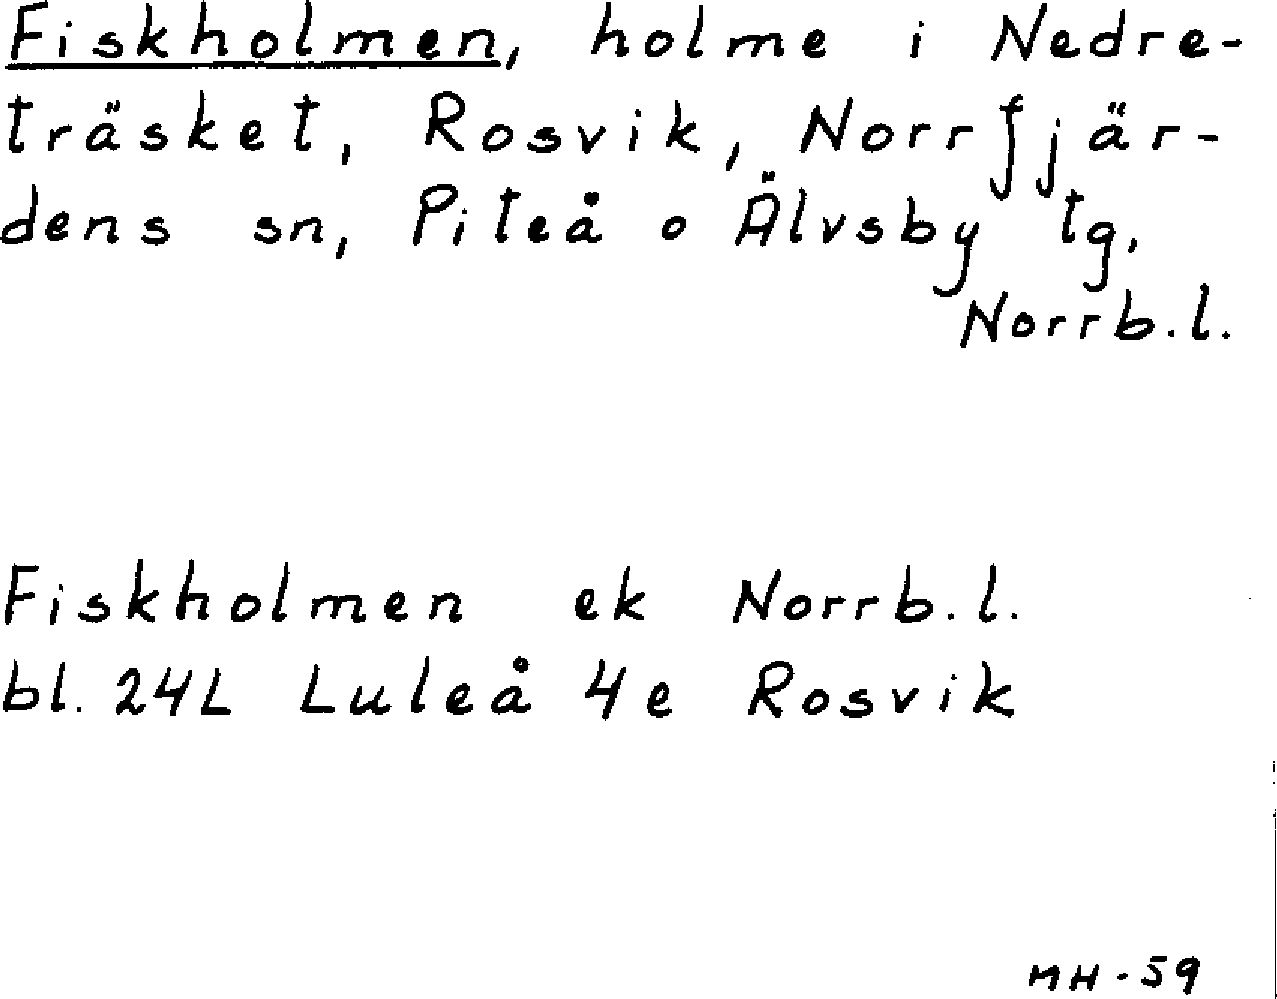 Fiskholmen, holme i Nedre-
träsket, Rosvik, Norrfjär-
dens sn, Piteå o Älvsby tg,
Norrb.l.
Fiskholmen ek Norrb.l.
bl. 24L Luleå 4e Rosvik
MH-59